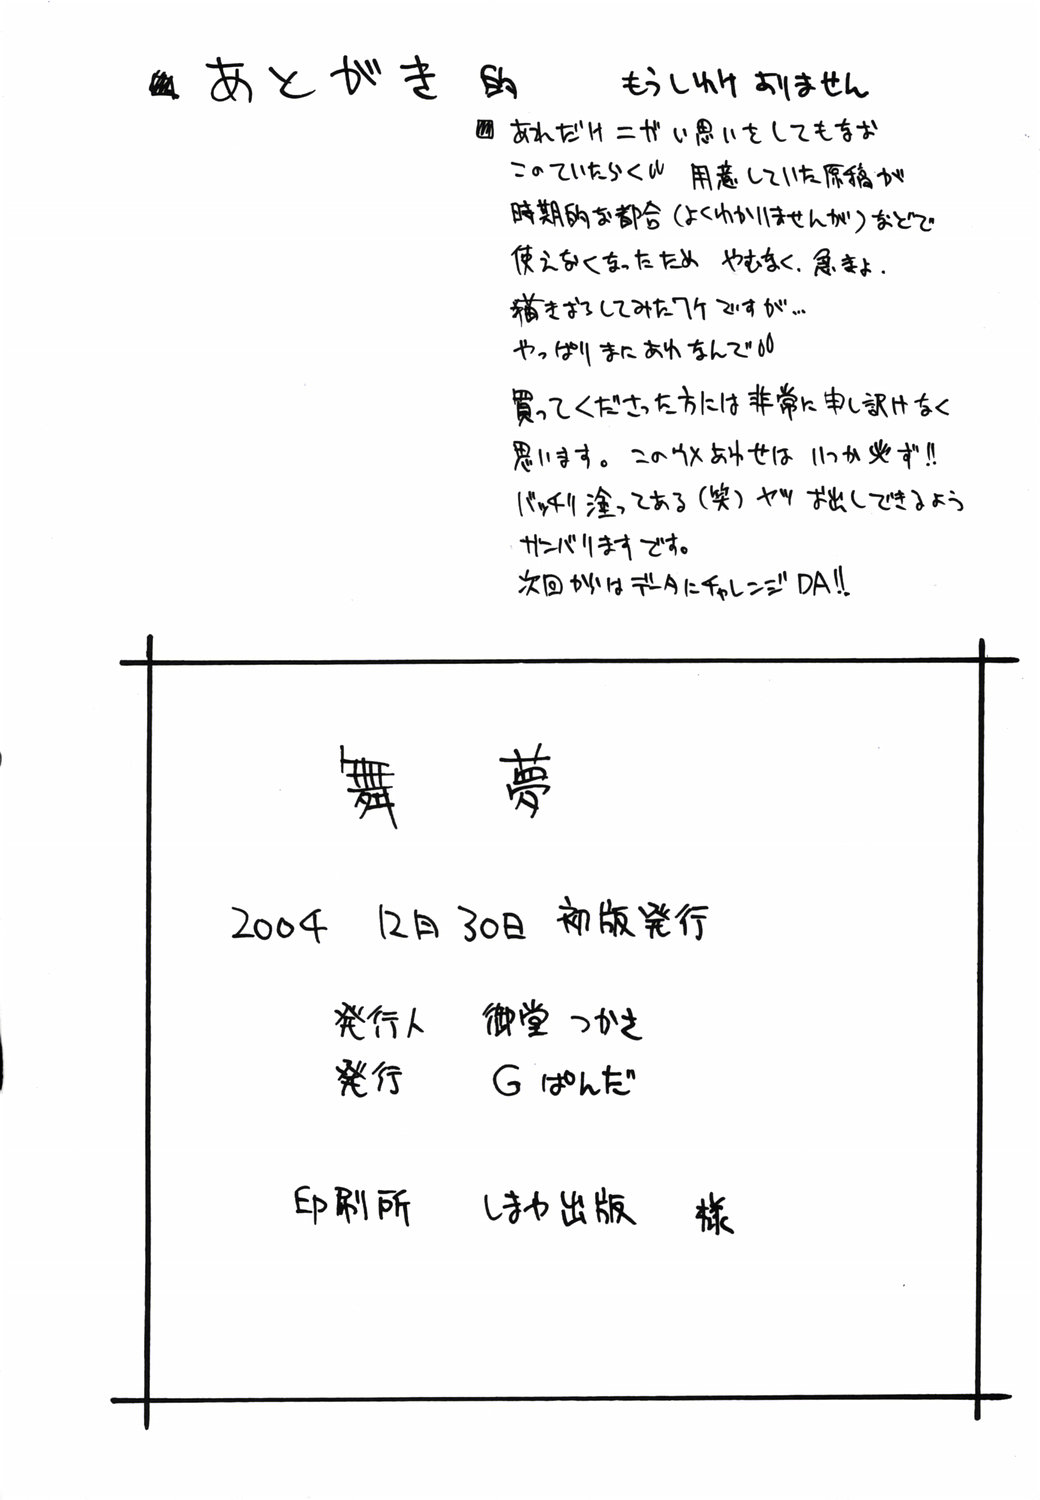 あとがき的 もうしわけありません
あれだけニガい思いをしてもなお
このていたらく 用意していた原稿が
時期的な都合(よくわかりませんが)などで
使えなくなったため やむなく、急きょ、
描きおろしてみたワケですが…
やっぱりまにあわなんで
買ってくださった方には非常に申し訳けなく
思います。このウメあわせはいつか必ず!!
バッチリ塗ってある(笑)ヤツお出しできるよう
ガンバリますです。
次回からはデータにチャレンジDA!!
舞 夢
2004 12月30日 初版発行
発行人 御堂つかさ
発行 Gぱんだ
印刷所 しまや出版 様